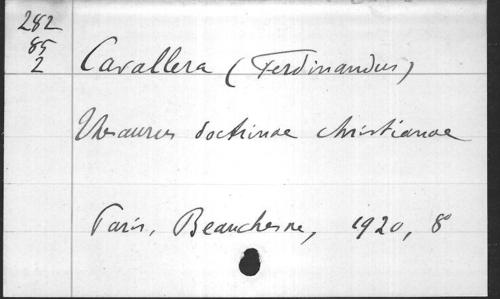 282
85
2
Cavallera (Ferdinandus)
Thesaurus doctrinae christianae
Paris, Beauchesne, 1920, 8°